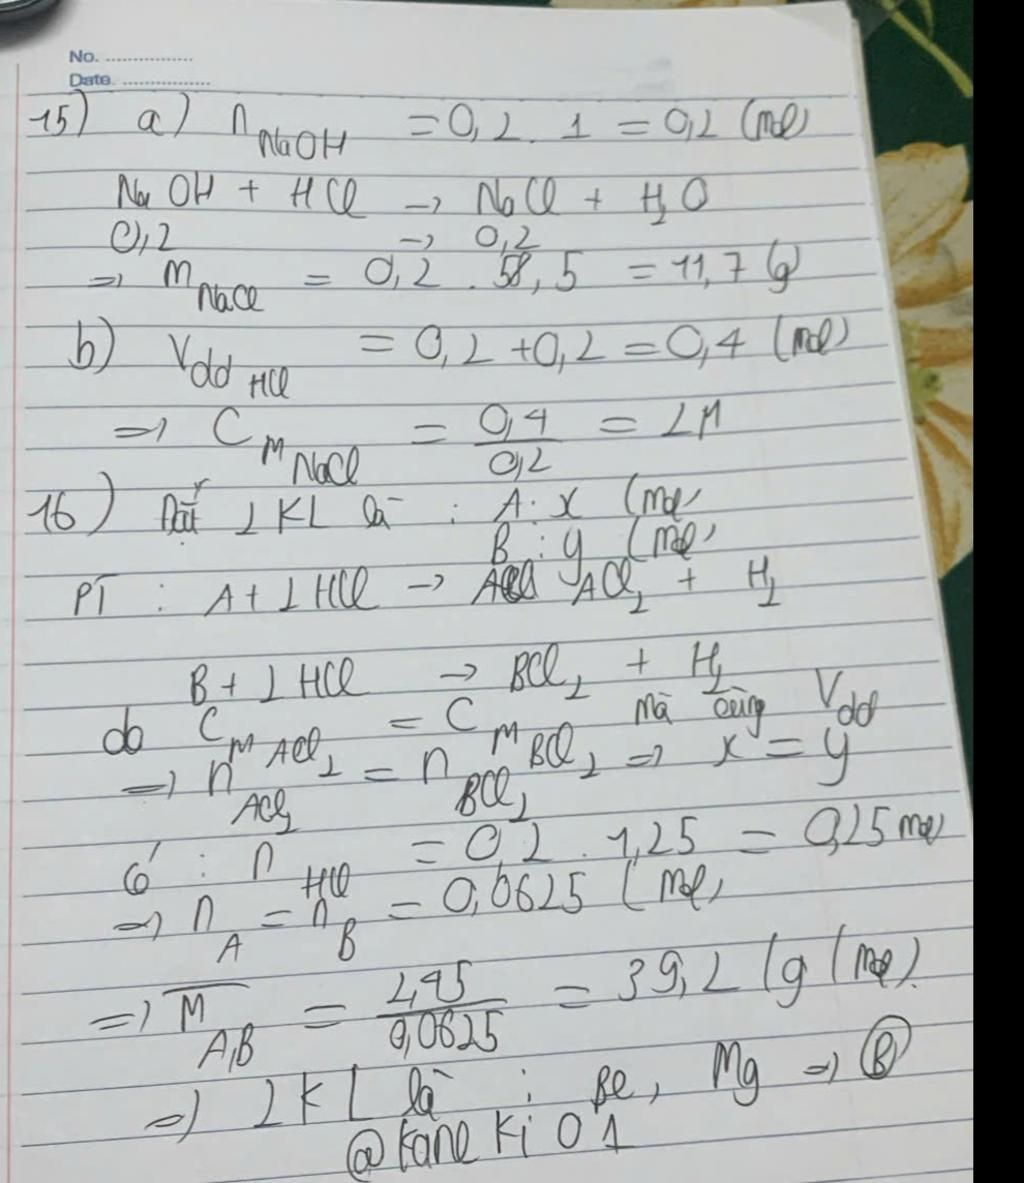 No. ................
Date ......................
15) a) n NaOH = 0,2 . 1 = 0,2 (mol)
NaOH + HCl → NaCl + H₂O
0,2 → 0,2
=> m NaCl = 0,2 . 58,5 = 11,7 (g)
b) V dd HCl = 0,2 + 0,2 = 0,4 (mol)
=> C M NaCl = 0,4 / 0,2 = 2M
16) Đặt 2 KL là : A : x (mol)
B : y (mol)
PT : A + 2HCl → ACl₂ + H₂
B + 2HCl → BCl₂ + H₂
do C M ACl₂ = C M BCl₂ mà cùng V dd
=> n ACl₂ = n BCl₂ => x = y
Có : n HCl = 0,2 . 1,25 = 0,25 mol
=> n A = n B = 0,0625 (mol)
=> M̅ A,B = 2,45 / 0,0625 = 39,2 (g/mol).
=> 2 KL là : Be, Mg => Ⓑ
@kaneki01